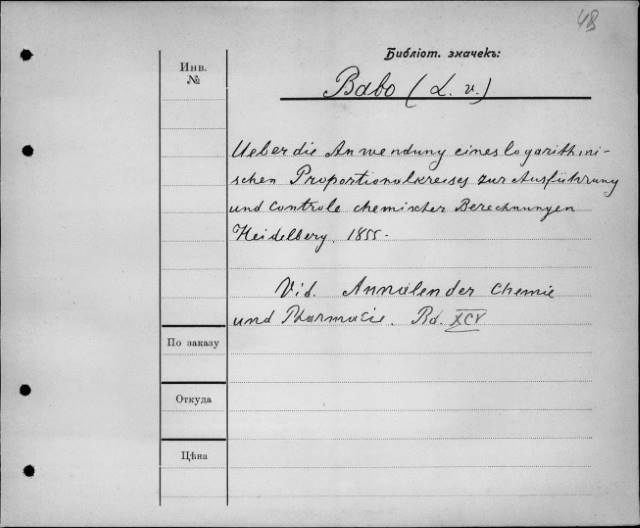 48
Библіот. значекъ:
Инв.
№
Babo (L. v.)
Ueber die Anwendung eines logarithmi-
schen Proportionalkreises zur Ausführung
und Controle chemischer Berechnungen
Heidelberg. 1855.
Vid. Annalen der Chemie
und Pharmacie. Bd. XCV
По заказу
Откуда
Цѣна